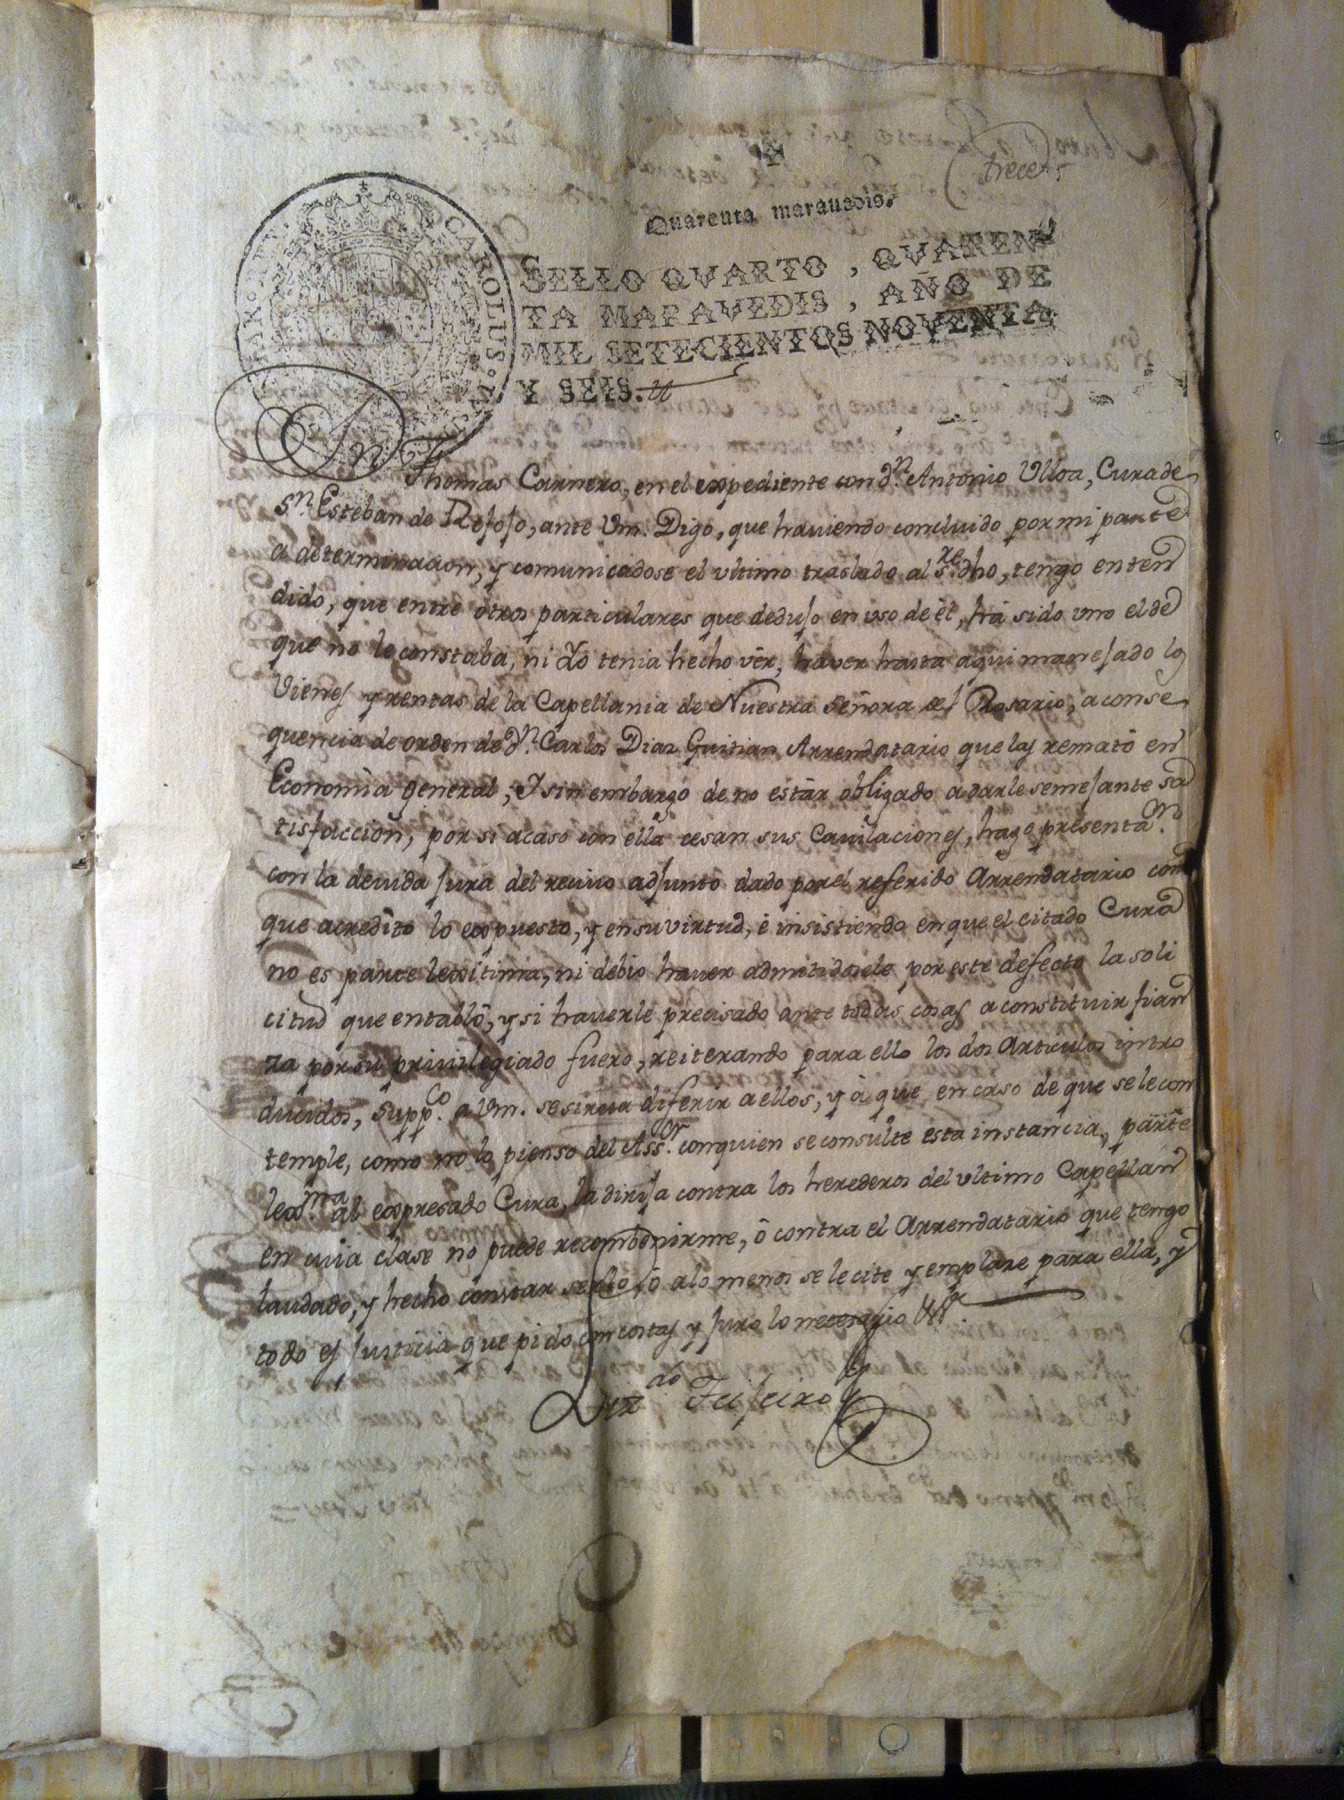 trece
Quarenta marauedis.
SELLO QVARTO, QVAREN-
TA MARAVEDIS, AÑO DE
MIL SETECIENTOS NOVENTA
Y SEIS.
CAROLUS
Thomas Carnero, en el expediente con dn. Antonio Ulloa, Cura de
Sn. Esteban de Refojo, ante Vm. Digo, que haviendo concluido por mi parte
a determinacion, y comunicadose el vltimo traslado al sre. dho, tengo enten
dido, que entre otros particulares que dedujo en vso de èl, hà sido vno el de
que no le constaba, ni Yo tenia hecho vèr, haver hasta aqui manejado los
Vienes y rentas de la Capellania de Nuestra Señora del Rosario, a conse
quencia de orden de dn. Carlos Diaz Guitian Arrendatario que las remató en
Economìa general; Y sin embargo de no estàr obligado a darle semejante sa
tisfaccion, por si acaso con ella cesan sus Cavilaciones, hago presentan.
con la devida jura del recivo adjunto dado por el referido Arrendatario con
que acredito lo expuesto, y en su virtud, è insistiendo en que el citado Cura
no es parte lexitima, ni debio haver admitidosele por este defecto la soli
citud que entabló, y si haverle precisado ante todas cosas a constituir fian
za por su privilegiado fuero, reiterando para ello los dos Articulos intro
ducidos, suppco. a Vm. se sirva diferir a ellos, y à que, en caso de que se le con
temple, como no lo pienso del Assor. con quien se consulte esta instancia, parte
lexma. al expresado Cura, la dirija contra los herederos del vltimo Capellan
en cuia clase no puede recombenirme, ò contra el Arrendatario que tengo
laudado, y hecho constar serlo, ò a lo menos se le cite y emplaze para ella, y
todo es Justicia que pido con costas y juro lo necesario &a.
Lizdo. Feijoiro